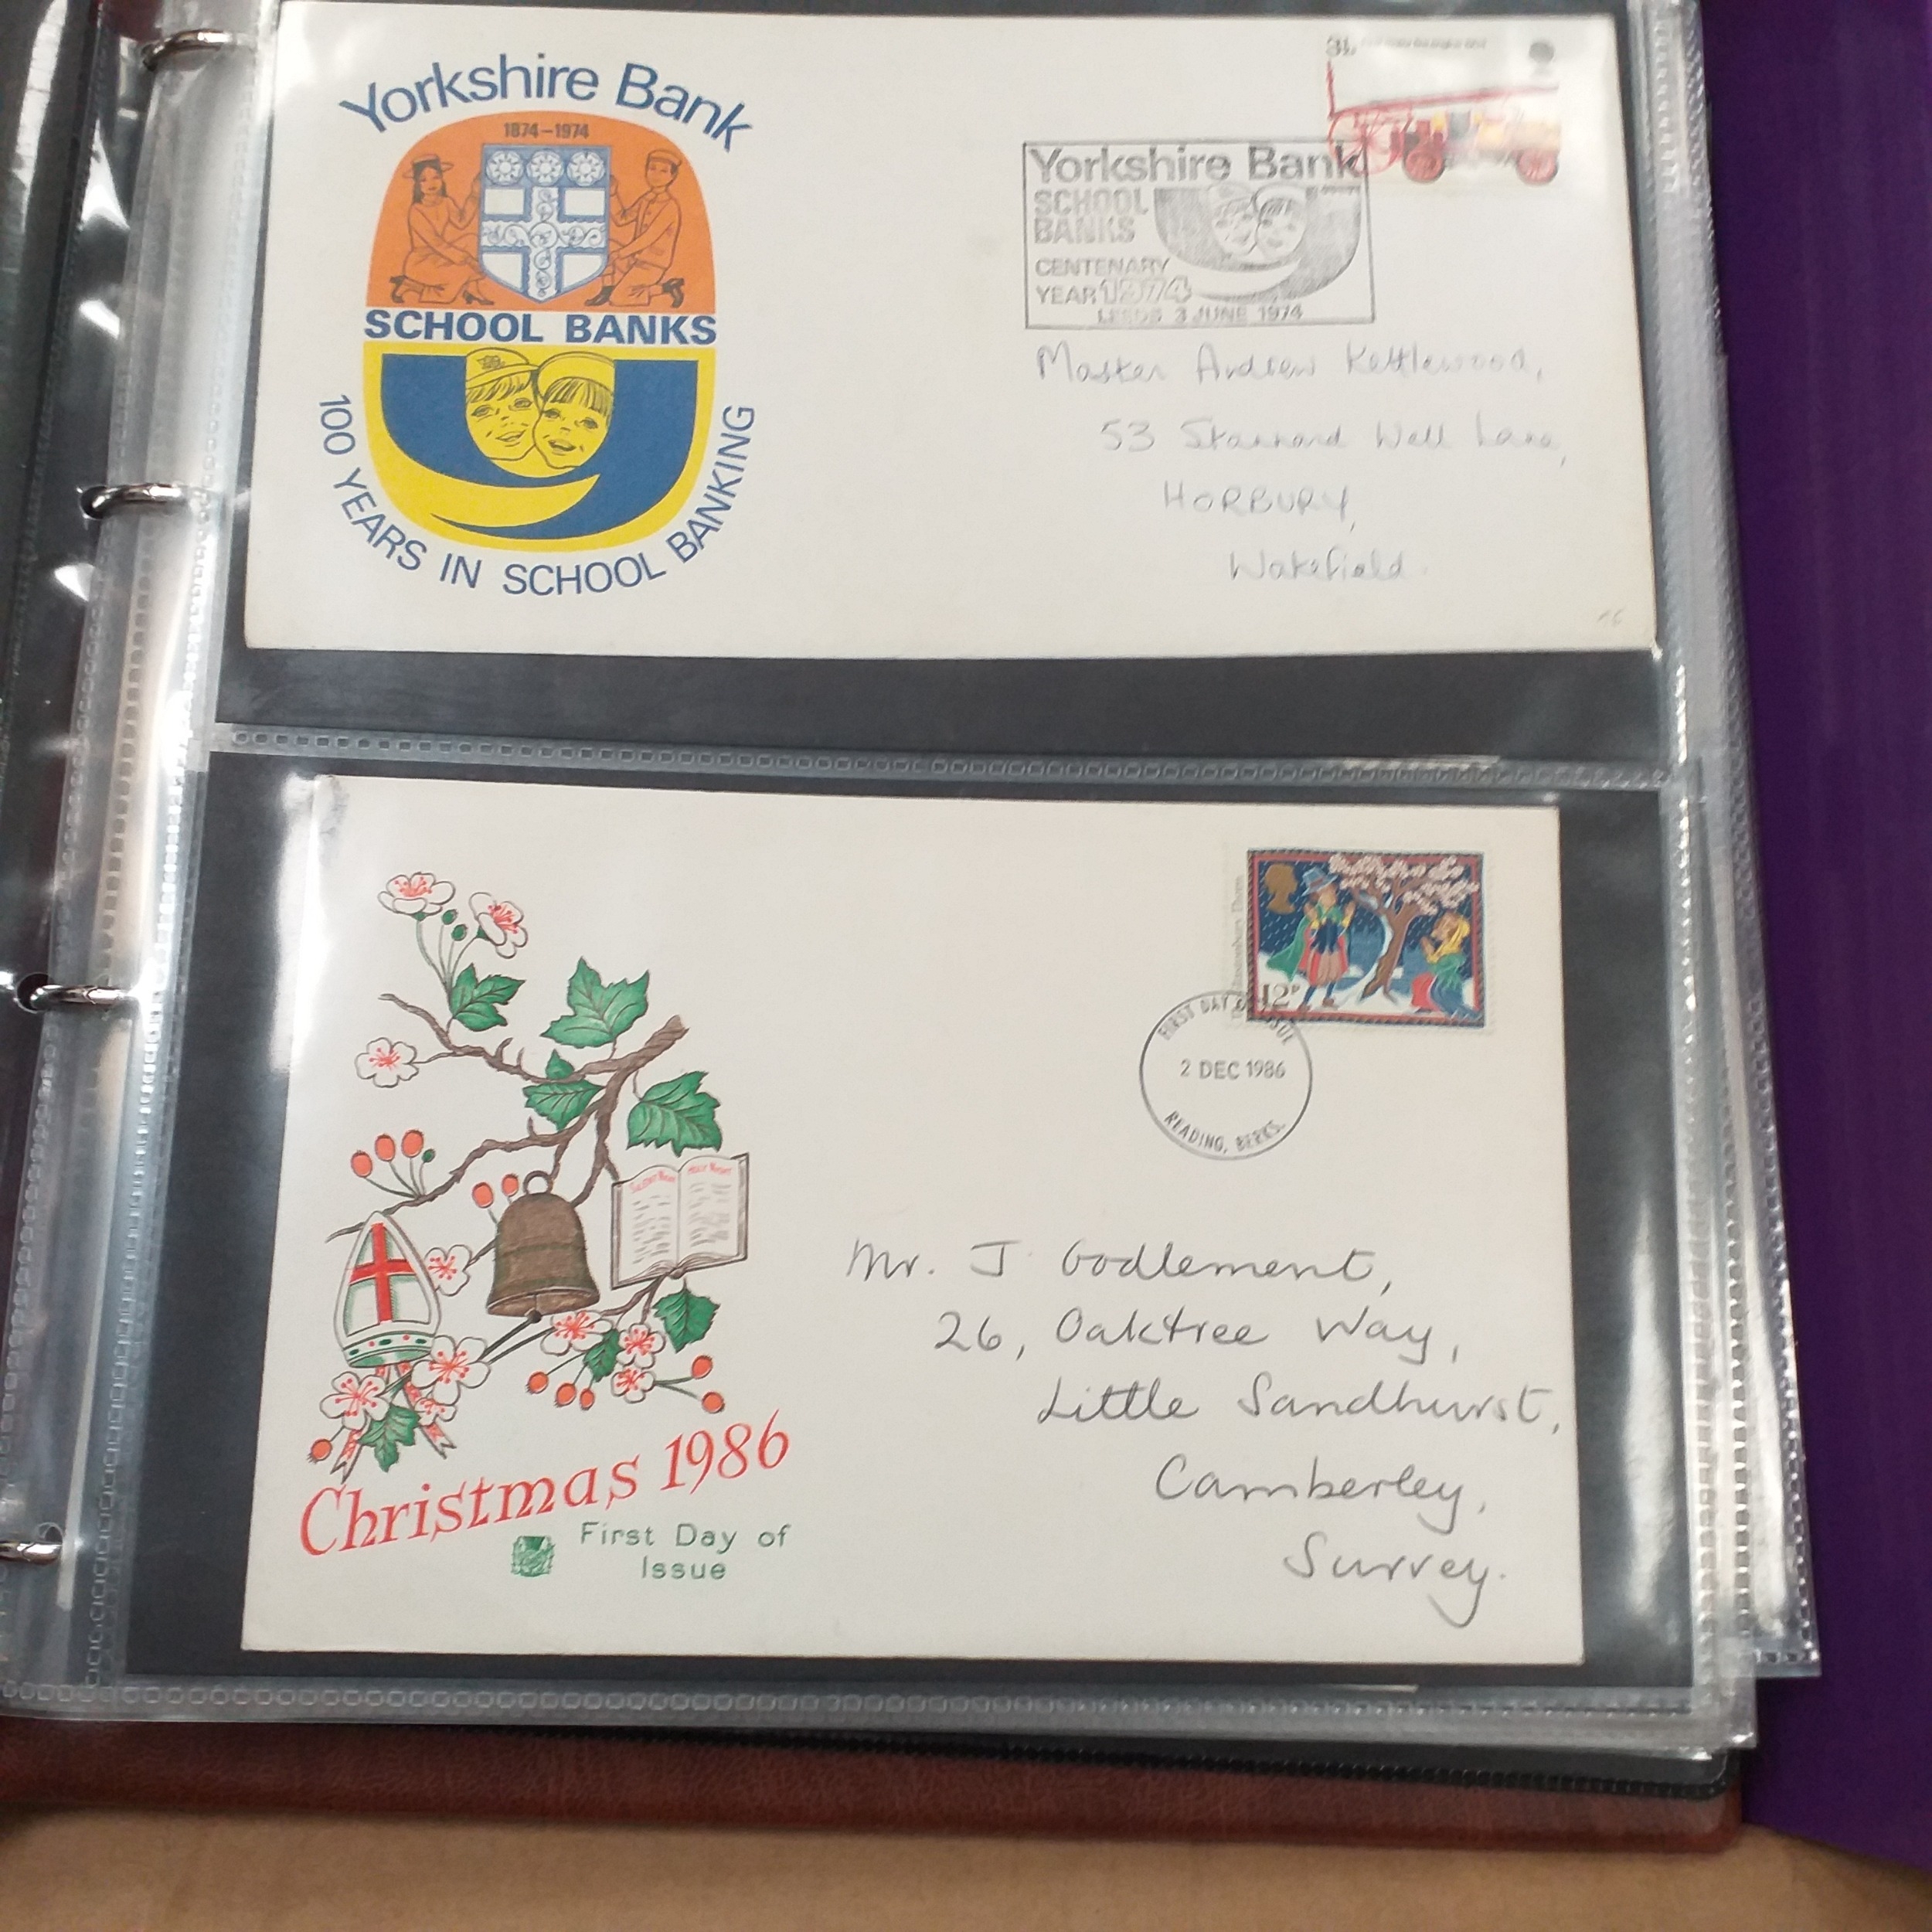 Yorkshire Bank
1874-1974
SCHOOL BANKS
100 YEARS IN SCHOOL BANKING
Yorkshire Bank
SCHOOL
BANKS
CENTENARY
YEAR 1974
LEEDS 3 JUNE 1974
Master Andrew Kettlewood,
53 Stannard Well Lane,
HORBURY,
Wakefield.
12P
FIRST DAY OF ISSUE
2 DEC 1986
READING, BERKS.
SILENT NIGHT
HOLY NIGHT
Mr. J Godlement,
26, Oaktree Way,
Little Sandhurst,
Camberley,
Surrey.
Christmas 1986
First Day of
Issue